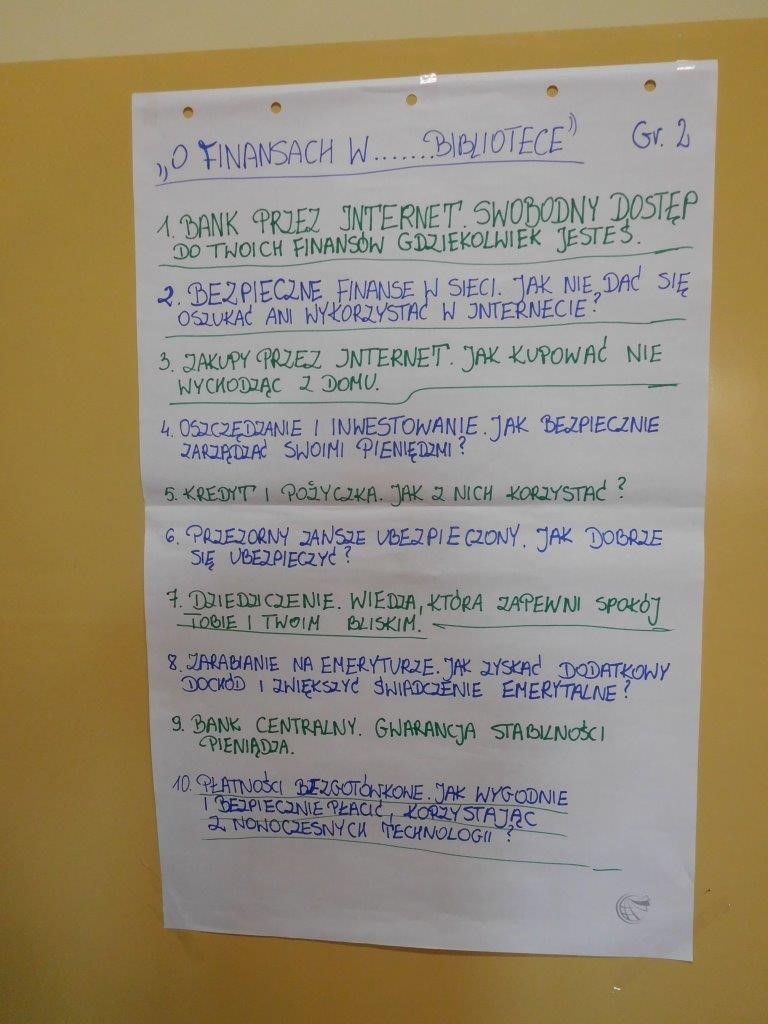 „O FINANSACH W.......BIBLIOTECE” Gr. 2
1. BANK PRZEZ INTERNET. SWOBODNY DOSTĘP
DO TWOICH FINANSÓW GDZIEKOLWIEK JESTEŚ.
2. BEZPIECZNE FINANSE W SIECI. JAK NIE DAĆ SIĘ
OSZUKAĆ ANI WYKORZYSTAĆ W INTERNECIE?
3. ZAKUPY PRZEZ INTERNET. JAK KUPOWAĆ NIE
WYCHODZĄC Z DOMU.
4. OSZCZĘDZANIE I INWESTOWANIE. JAK BEZPIECZNIE
ZARZĄDZAĆ SWOIMI PIENIĘDZMI?
5. KREDYT I POŻYCZKA. JAK Z NICH KORZYSTAĆ?
6. PRZEZORNY ZAWSZE UBEZPIECZONY. JAK DOBRZE
SIĘ UBEZPIECZYĆ?
7. DZIEDZICZENIE. WIEDZA, KTÓRA ZAPEWNI SPOKÓJ
TOBIE I TWOIM BLISKIM.
8. ZARABIANIE NA EMERYTURZE. JAK ZYSKAĆ DODATKOWY
DOCHÓD I ZWIĘKSZYĆ ŚWIADCZENIE EMERYTALNE?
9. BANK CENTRALNY. GWARANCJA STABILNOŚCI
PIENIĄDZA.
10. PŁATNOŚCI BEZGOTÓWKOWE. JAK WYGODNIE
I BEZPIECZNIE PŁACIĆ, KORZYSTAJĄC
Z NOWOCZESNYCH TECHNOLOGII?